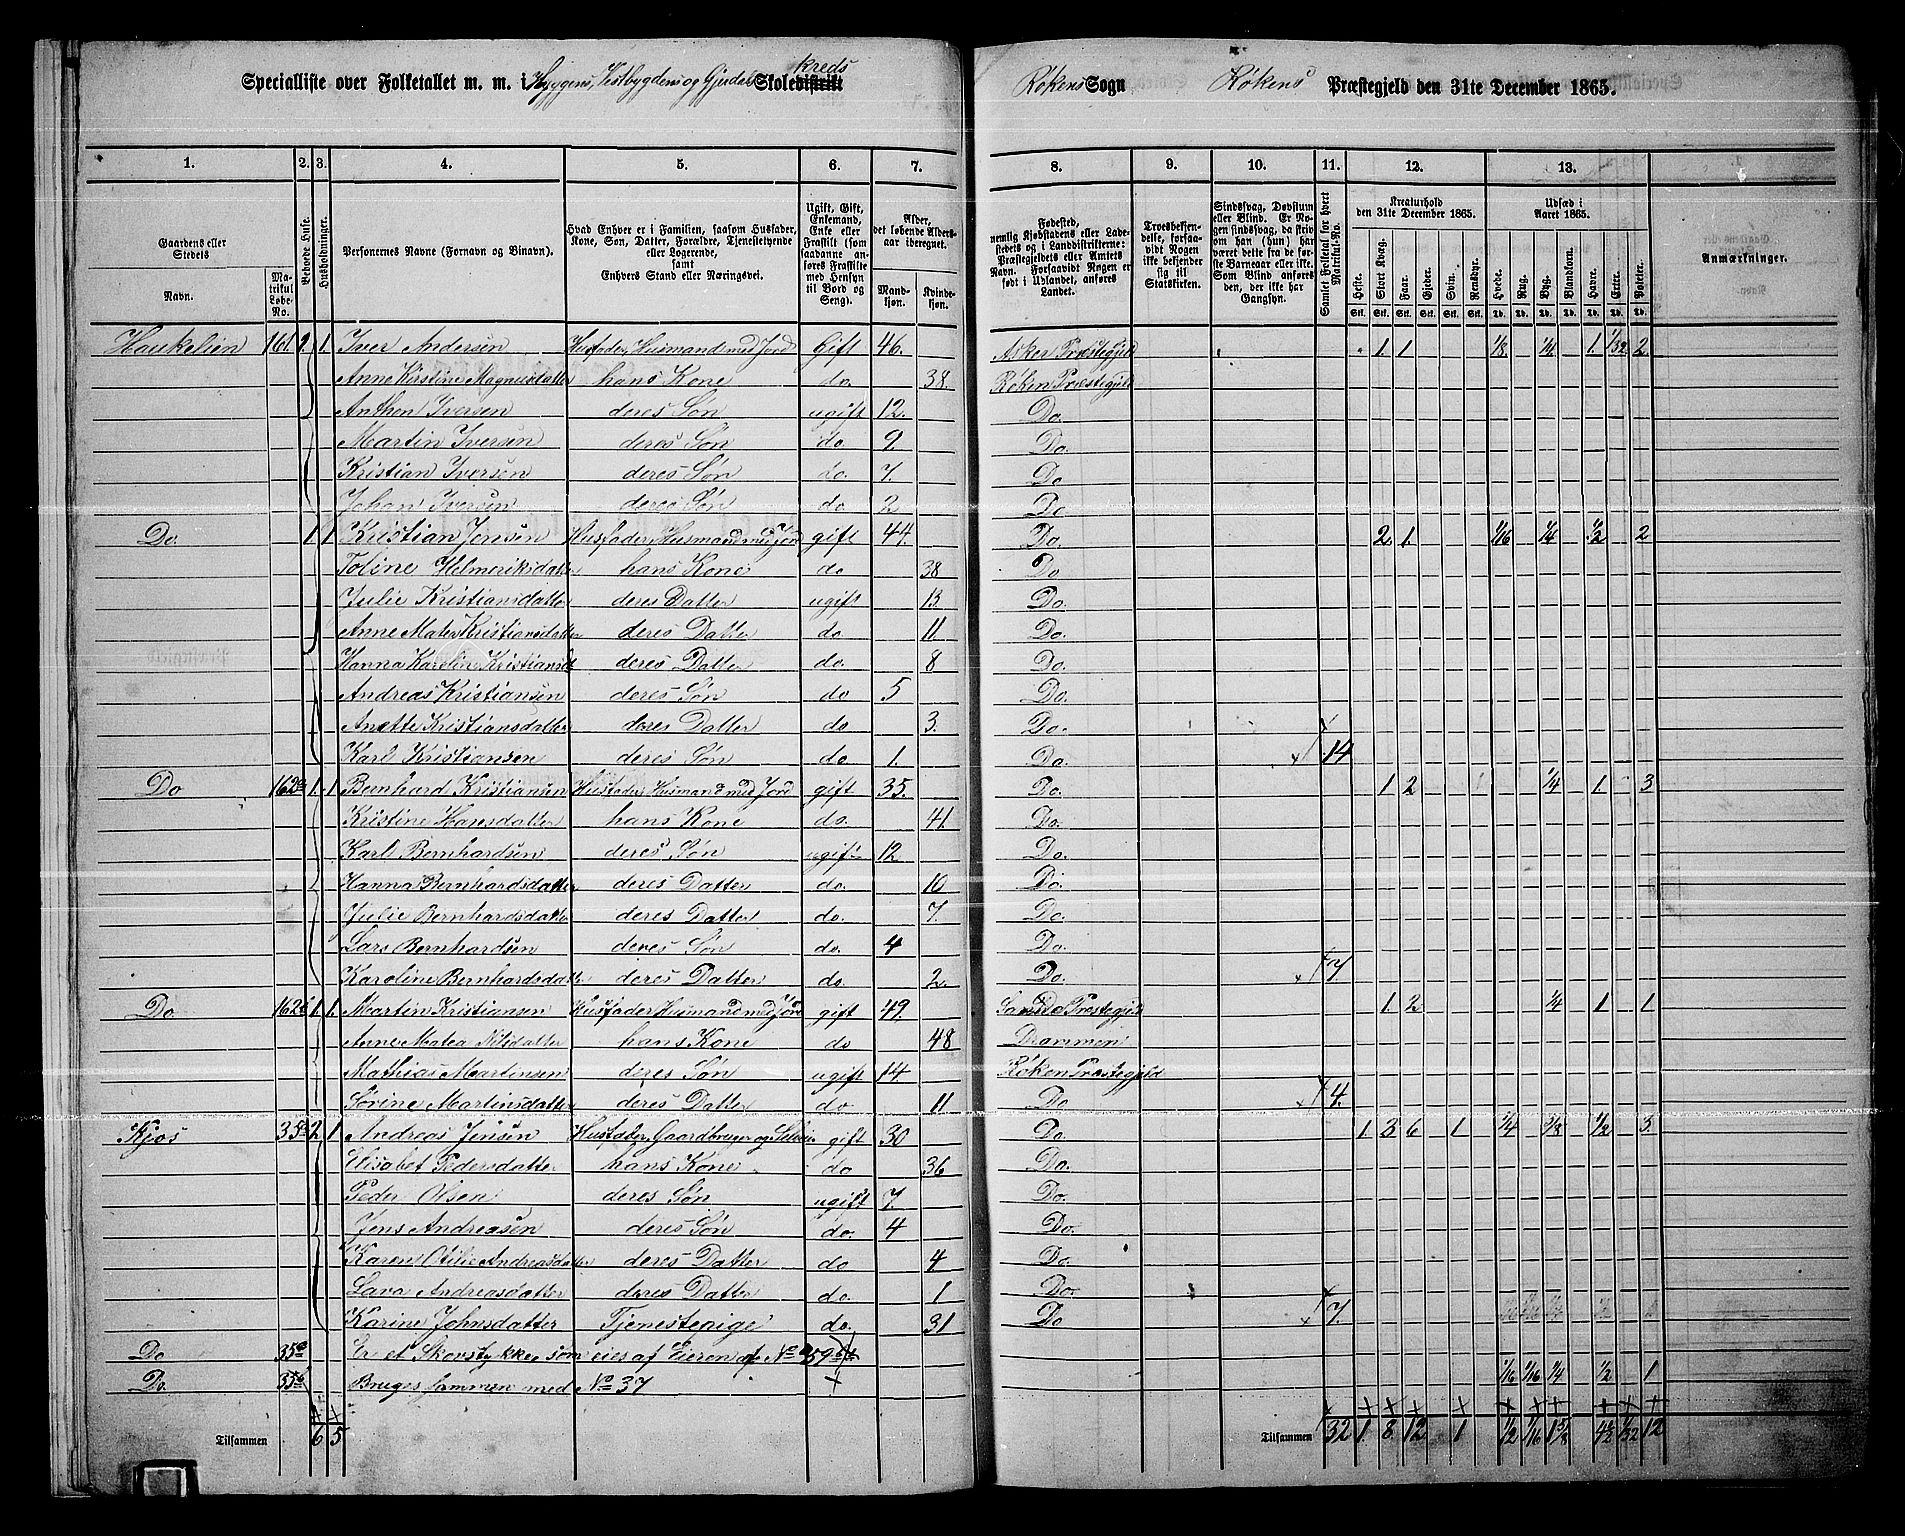 Specialliste over Folketallet m. m. i Hyggens, Vestbygdens og Gjerdals Skoledistrikt kreds Røkens Sogn Røkens Præstegjeld den 31te December 1865.
1. 2. 3. 4. 5. 6. 7. 8. 9. 10. 11. 12. 13.
Gaardens eller Stedets
Navn. Matrikul Løbe-No.
Beboede Huse.
Husholdninger.
Personernes Navne (Fornavn og Binavn).
Hvad Enhver er i Familien, saasom Husfader, Kone, Søn, Datter, Forældre, Tjenestetyende eller Logerende, samt Enhvers Stand eller Næringsvei.
Ugift, Gift, Enkemand, Enke eller Fraskilt (som saadanne anføres Fraskilte med Hensyn til Bord og Seng).
Alder, det løbende Aldersaar iberegnet.
Mandkjøn. Kvindekjøn.
Fødested, nemlig Kjøbstadens eller Ladestedets og i Landdistrikterne: Præstegjeldets eller Amtets Navn. Forsaavidt Nogen er født i Udlandet, anføres Landet.
Troesbekjendelse, forsaavidt Nogen ikke bekjender sig til Statskirken.
Sindssvag, Døvstum eller Blind. Er Nogen sindssvag, da skriv om han (hun) har været dette fra de første Barneaar eller ikke. Som Blind anføres den, der ikke har Gangsyn.
Samlet Folketal for hvert Matrikul-No.
Kreaturhold den 31te December 1865.
Heste. Stort Kvæg. Faar. Gjeder. Svin. Rensdyr.
Udsæd i Aaret 1865.
Hvede. Rug. Byg. Blandkorn. Havre. Erter. Poteter.
Anmærkninger.
Haukelien 161. 2. 1. Iver Andersen Husfader, Husmand med Jord Gift 46. Asker Præstegjeld 1. 1 1/8 1/4 1. 1/32 2
Anne Kirstine Magnusdatter hans Kone do. 38. Røken Præstegjeld
Anthon Iversen deres Søn ugift 12. Do.
Martin Iversen deres Søn do 9 Do.
Kristian Iversen deres Søn do. 7. Do
Johan Iversen deres Søn do 2 Do
Do 1. 1 Kristian Jensen Husfader, Husmand med Jord gift 44. Do. 2. 1. 1/16 1/4 1/2 2
Toline Helmeriksdatter hans Kone do 38 Do
Julie Kristiansdatter deres Datter ugift 13. Do.
Anne Matea Kristiansdatter deres Datter do 11 Do.
Hanna Karolin Kristiansd deres Datter do. 8 Do.
Andreas Kristiansen deres Søn do 5 Do.
Anette Kristiansdatter deres Datter do 3. Do.
Karl Kristiansen deres Søn do 1. Do. 14
Do 162a 1. 1 Bernhard Kristiansen Husfader, Husmand med Jord gift 35. Do. 1 2 1/4 1. 3
Kristine Hansdatter hans Kone do. 41. Do.
Karl Bernhardsen deres Søn ugift 12 Do.
Hanna Bernhardsdatter deres Datter do. 10 Do.
Julie Bernhardsdatter deres Datter do. 7. Do.
Lars Bernhardsen deres Søn do. 4 Do.
Karoline Bernhardsdatter deres Datter do. 2. Do. 7
Do. 162b 1. 1. Martin Kristiansen Husfader Husmand med Jord gift 49. Sande Præstegjeld 1. 2 1/4 1 1
Anne Matea Nilsdatter hans Kone do 48 Drammen
Mathias Martinsen deres Søn ugift 14. Røken Præstegjeld
Sørine Martinsdatter deres Datter do. 11 Do 4.
Kjos 35a 2 1 Andreas Jensen Husfader, Gaardbruger og Selveier gift 30 Do. 1. 3 6 1 1/4 3/8 1/2 3.
Elisabet Pedersdatter hans Kone do 36 Do.
Peder Olsen deres Søn ugift 7. Do.
Jens Andreasen deres Søn do. 4 Do.
Karen Otilie Andreasdatter deres Datter do 4 Do.
Lava Andreasdatter deres Datter do. 1 Do.
Karine Johnsdatter Tjenestepige do. 31 Do 7.
Do 35 Er et Skovstykke som eies af Eieren af No 59
Do. 35 Bruges sammen med No 37 1/16 1/16 1/4 1/2 1
Tilsammen 6 5 Tilsammen 32 1. 8 12 1 1/2 1/16 1 5/8 4 1/2 1/32 12